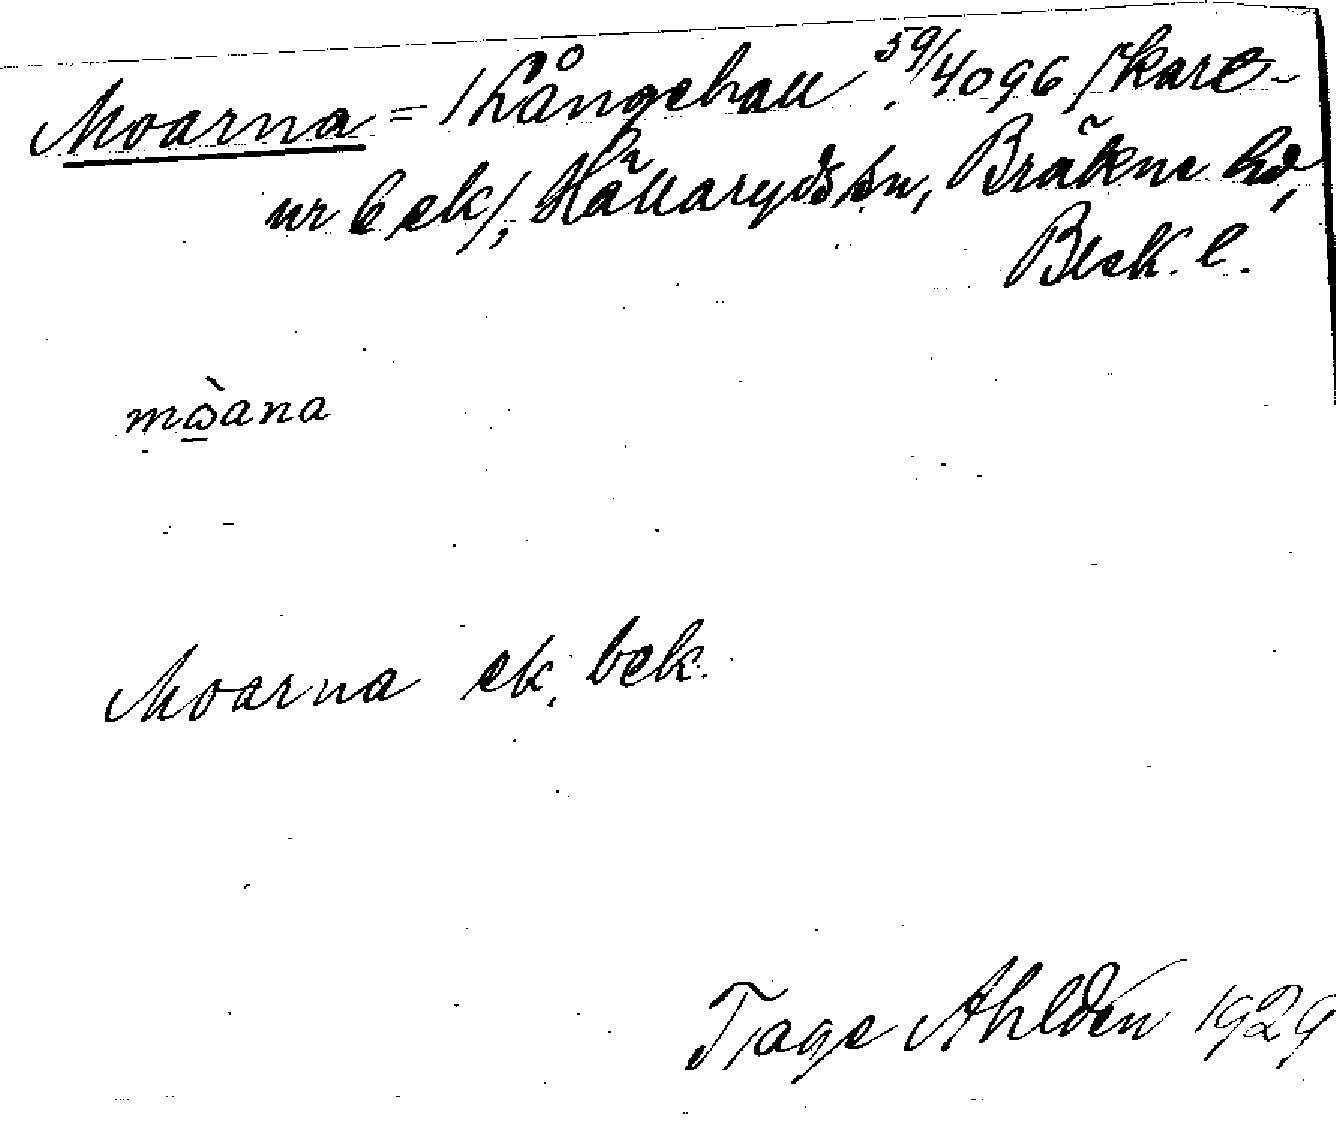 Moarna = /Långehall 59/4096 /kare-
ur bek/, Hällaryds sn, Bräkne hd,
Blek. l.
mòana
Moarna ek, bek.
Tage Ahldén 1929